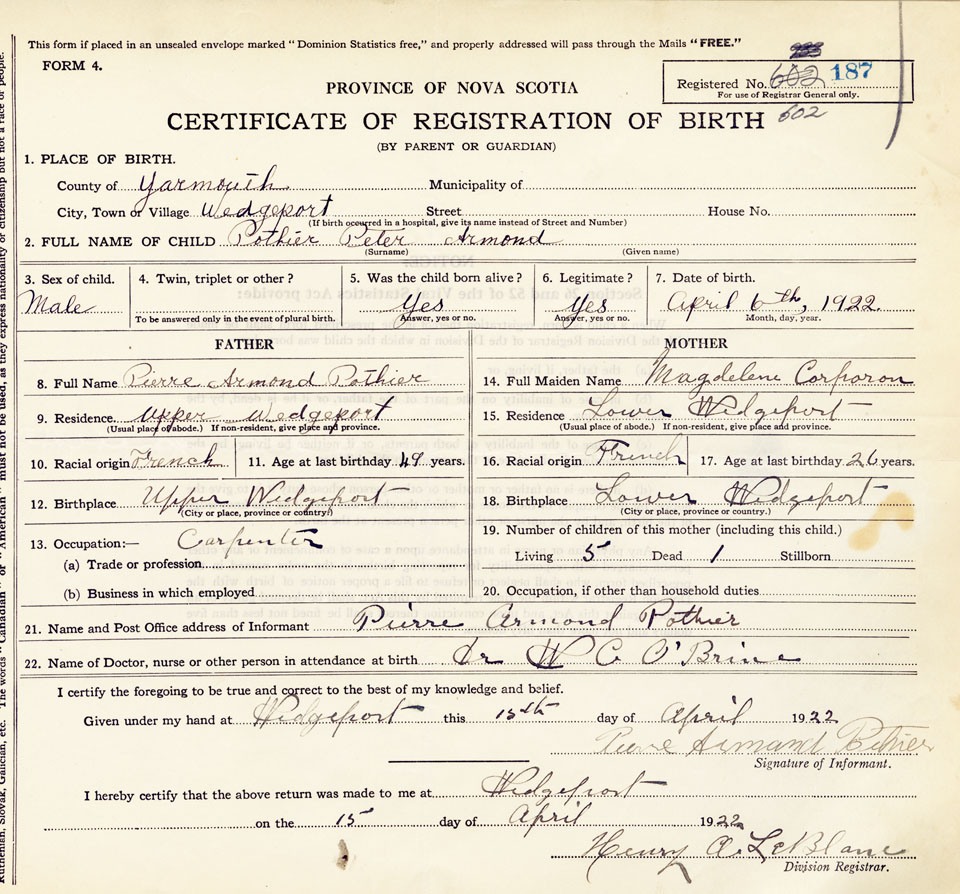 This form if placed in an unsealed envelope marked "Dominion Statistics free," and properly addressed will pass through the Mails "FREE."
FORM 4.
Registered No. 602 187
For use of Registrar General only.
602
PROVINCE OF NOVA SCOTIA
CERTIFICATE OF REGISTRATION OF BIRTH
(BY PARENT OR GUARDIAN)
1. PLACE OF BIRTH.
County of Yarmouth Municipality of
City, Town or Village Wedgeport Street House No.
(If birth occurred in a hospital, give its name instead of Street and Number)
2. FULL NAME OF CHILD Pothier Peter Armond
(Surname) (Given name)
3. Sex of child. 4. Twin, triplet or other? 5. Was the child born alive? 6. Legitimate? 7. Date of birth.
Male Yes Yes April 6th, 1922.
To be answered only in the event of plural birth. Answer, yes or no. Answer, yes or no. Month, day, year.
FATHER MOTHER
8. Full Name Pierre Armond Pothier 14. Full Maiden Name Magdelene Corporon
9. Residence Upper Wedgeport 15. Residence Lower Wedgeport
(Usual place of abode.) If non-resident, give place and province. (Usual place of abode.) If non-resident, give place and province.
10. Racial origin French 11. Age at last birthday 49 years. 16. Racial origin French 17. Age at last birthday 26 years.
12. Birthplace Upper Wedgeport 18. Birthplace Lower Wedgeport
(City or place, province or country!) (City or place, province or country.)
13. Occupation:— Carpenter 19. Number of children of this mother (including this child.)
(a) Trade or profession Living 5 Dead 1 Stillborn
(b) Business in which employed 20. Occupation, if other than household duties
21. Name and Post Office address of Informant Pierre Armond Pothier
22. Name of Doctor, nurse or other person in attendance at birth Dr W C O'Brine
I certify the foregoing to be true and correct to the best of my knowledge and belief.
Given under my hand at Wedgeport this 15th day of April 1922
Pierre Armand Pothier
Signature of Informant.
I hereby certify that the above return was made to me at Wedgeport
on the 15 day of April 1922
Henry A. LeBlanc
Division Registrar.
Ruthenian, Slovak, Galician, etc. The words "Canadian" or "American" must not be used, as they express nationality or citizenship but not a race of people.